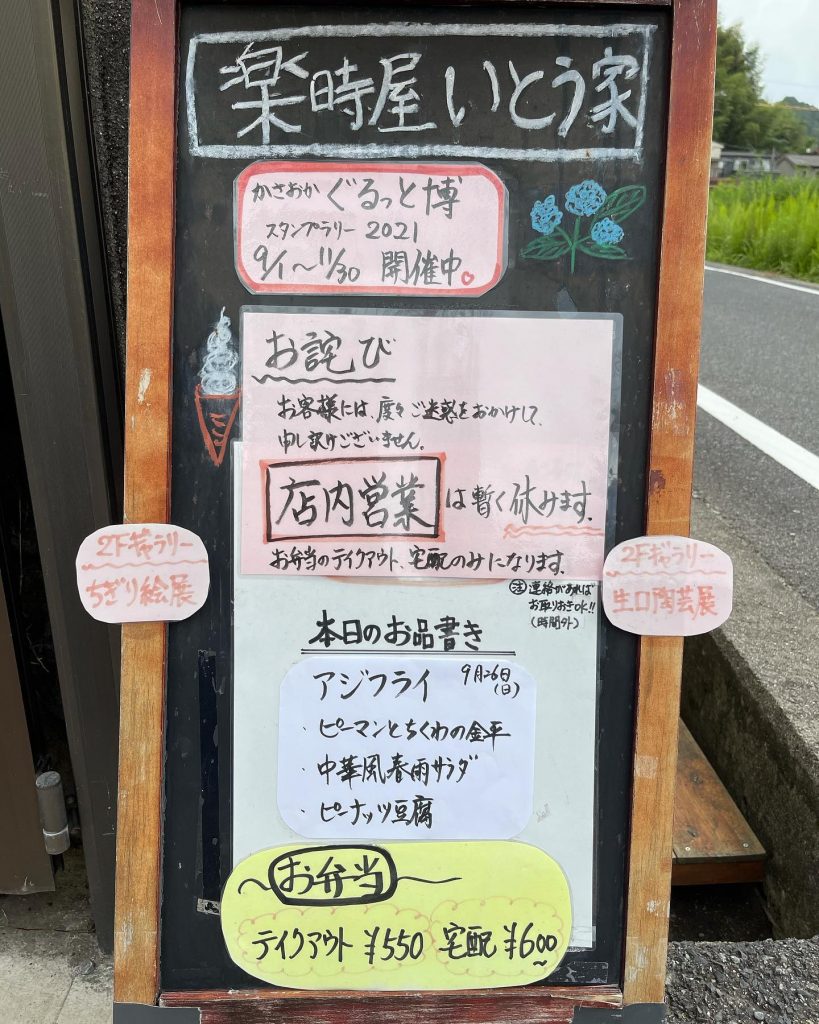 楽時屋いとう家
かさおか ぐるっと博
スタンプラリー 2021
9/1〜11/30 開催中
お詫び
お客様には、度々ご迷惑をおかけして、
申し訳ございません。
店内営業は暫く休みます。
お弁当のテイクアウト、宅配のみになります。
2Fギャラリー
ちぎり絵展
2Fギャラリー
生口陶芸展
注 連絡があれば
お取りおきOK!!
(時間外)
本日のお品書き
アジフライ 9月26日
(日)
・ピーマンとちくわの金平
・中華風春雨サラダ
・ピーナッツ豆腐
〜お弁当〜
テイクアウト ¥550 宅配 ¥600